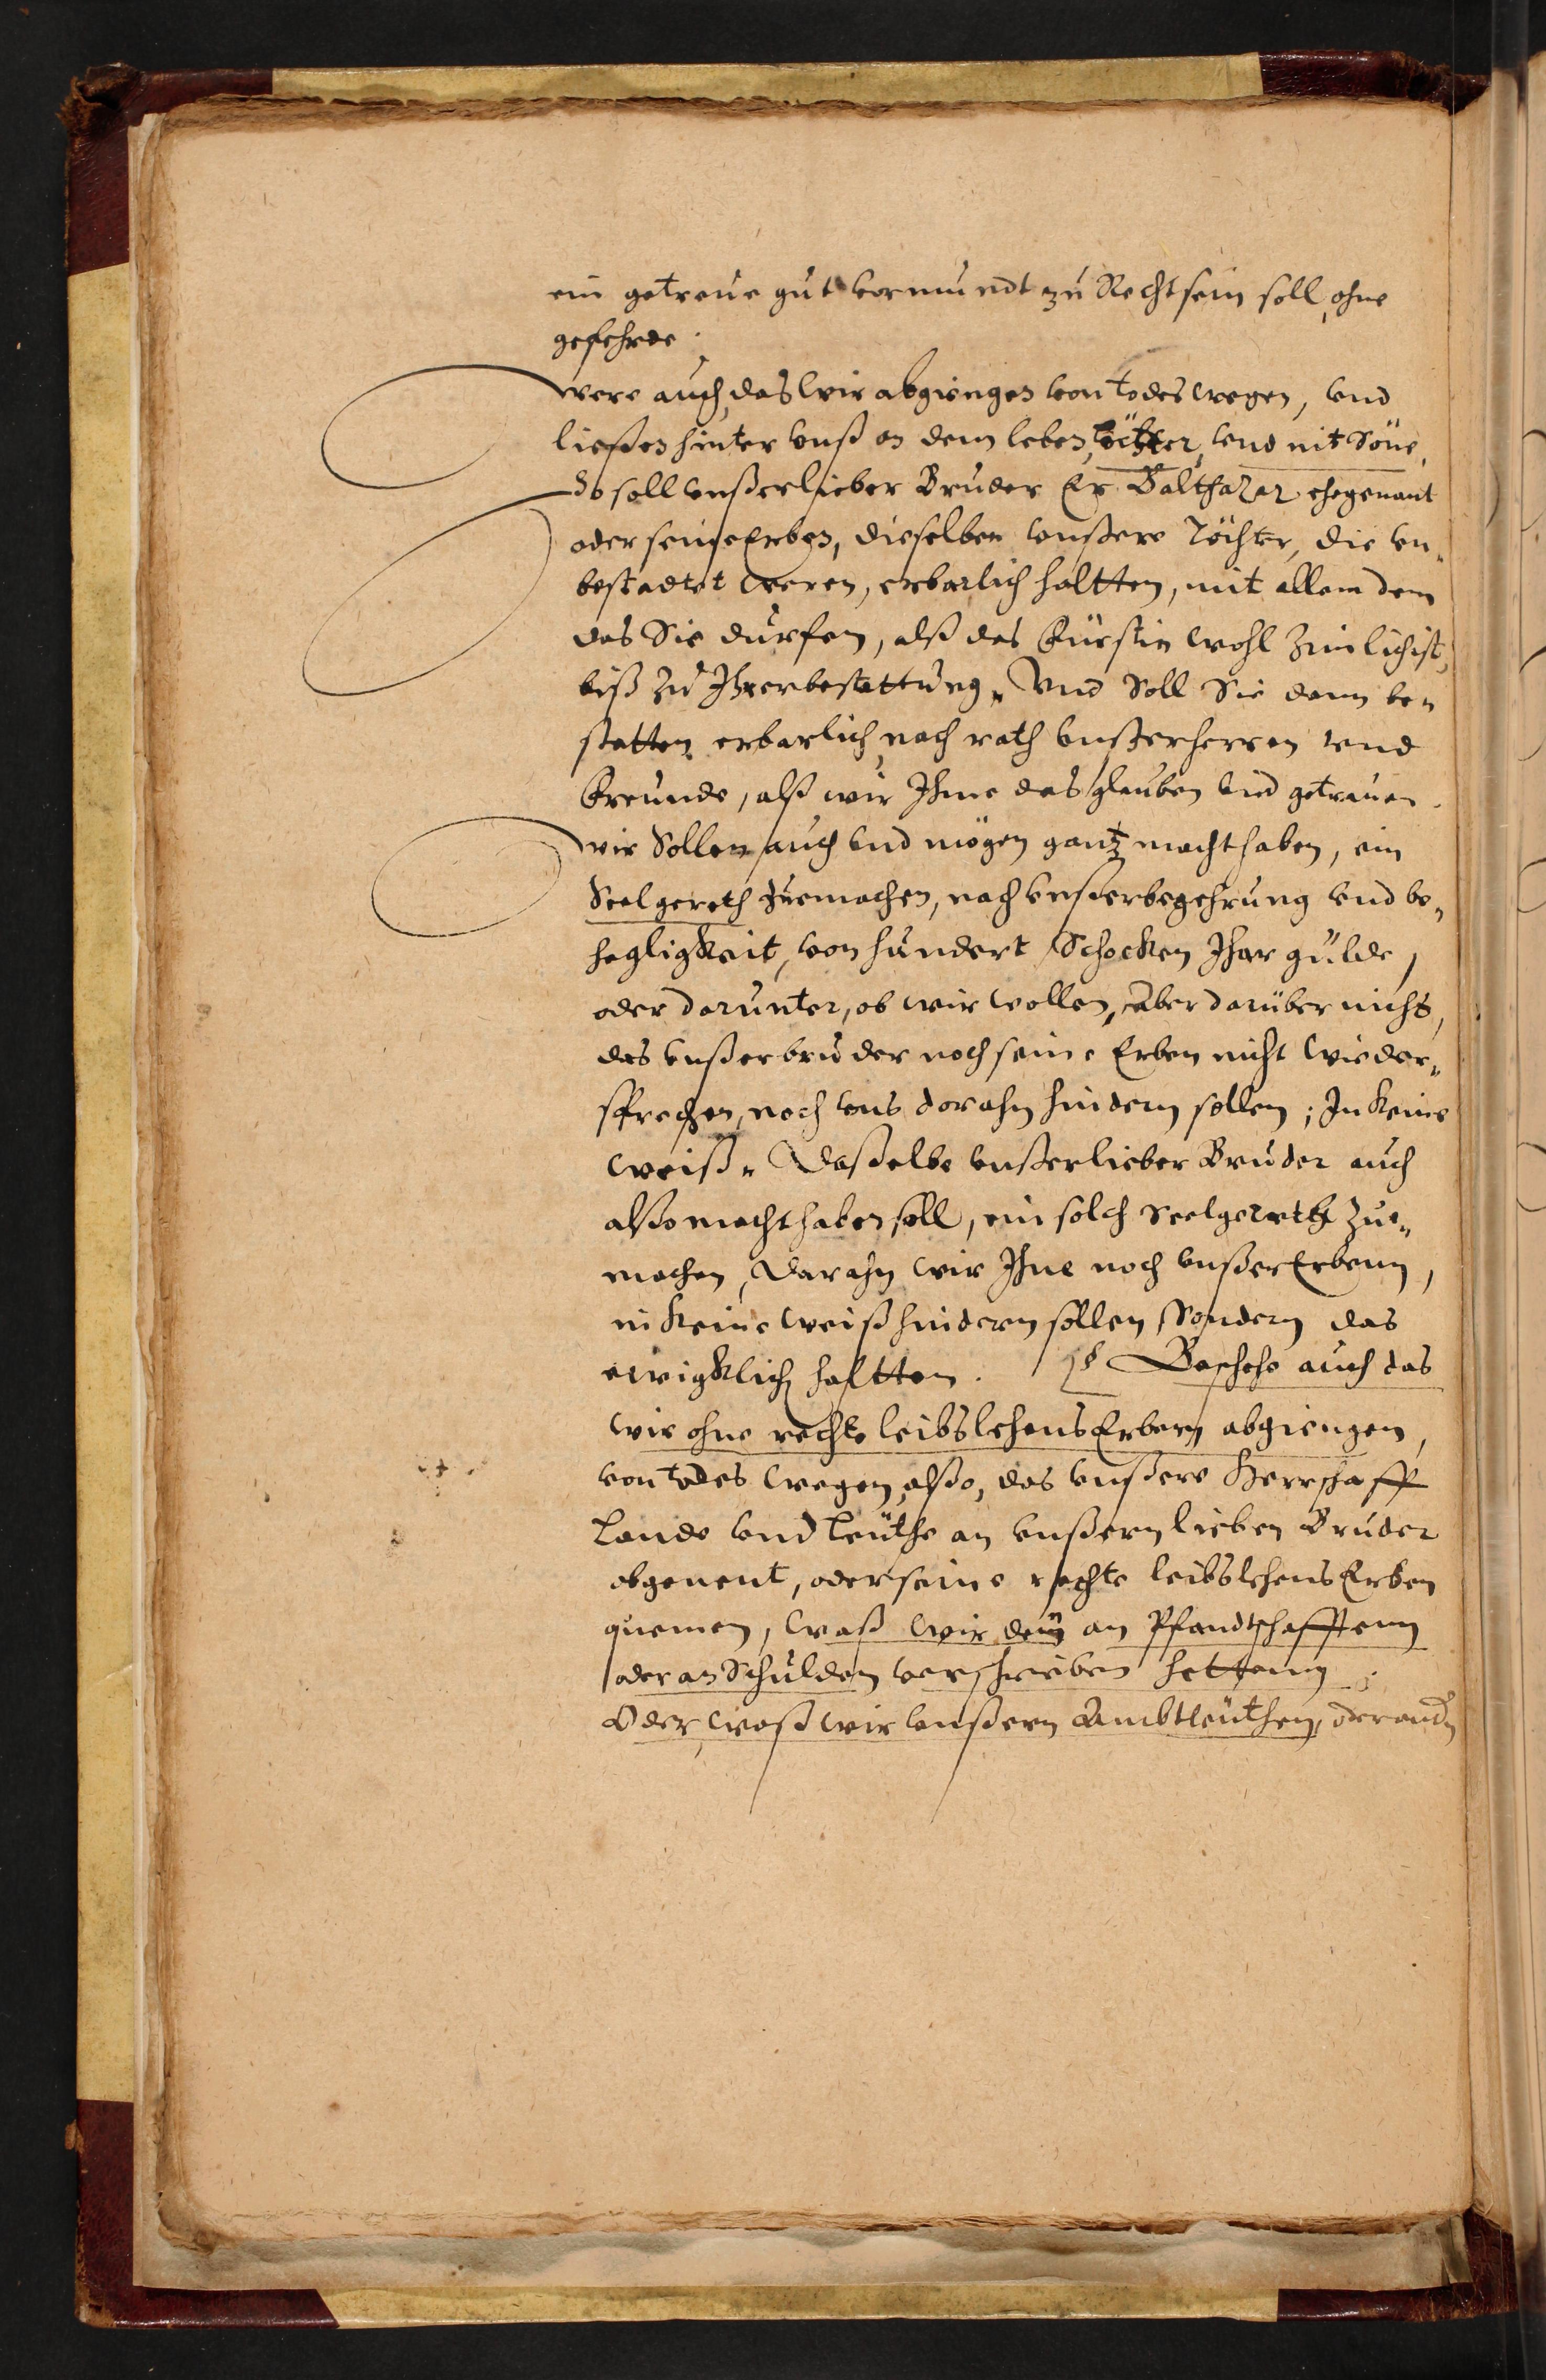 ein getreue gut vormundt zu Recht sein soll, ohne
gefehrde.
were auch, das wir abgiengen von todes wegen, vnd
ließen hinter vnß an dem leben, töchter, vnd nit Söne,
So soll vnßer lieber Bruder Er Balthazar ehegenant
oder seine Erben, dieselben vnßere Töchter, die vn„
bestadtet weren, erbarlich haltten, mit allem dem
das Sie durfen, alß das Fürstin wohl zimlich ist,
biß zu Ihrer bestattung„ Vnd Soll Sie dann be„
statten erbarlich, nach rath vnßer herren vnd
Freunde, alß wir Ihme das glauben vnd getrauen.
wir Sollen auch vnd mögen gantz macht haben, ein
Seelgereth zuemachen, nach vnßer begehrung vnd be„
hegligkeit, von hundert Schocken Ihar gulde,
oder darunter, ob wir wollen, Aber darüber nicht,
das vnßer bruder noch seine Erben nicht wieder„
sprechen, noch vns darahn hindern sollen; In keine
weiß„ Daßelbe vnßer lieber Bruder auch
alßo macht haben soll, ein solch Seelgereth zue„
machen, Darahn wir Ihne noch vnßer Erbenn,
in keine weiß hindern sollen Sondern das
ewigklich haltten. Geschehe auch das
wir ohne rechte leibslehens Erben abgiengen,
von todes wegen, alßo, das vnßere Herrschafft
Lande vnd Leuthe an vnßern lieben Bruder
obgenent, oder seine rechte leibslehens Erben
quemen, waß wir den an Pfandtschafftenn
oder an Schulden verschrieben hettenn.
Oder waß wir vnßern Ambtleuthen, oder andn